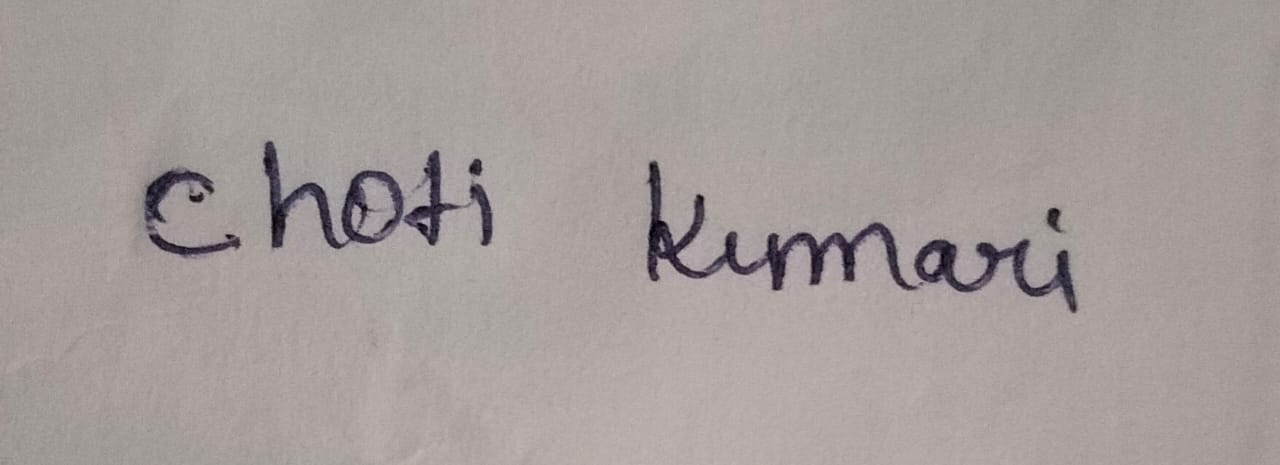 Choti Kumari